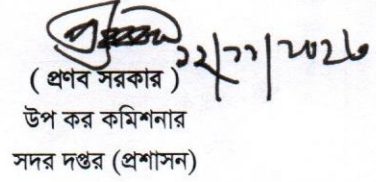 ১২/১১/২০২৩
( প্রণব সরকার )
উপ কর কমিশনার
সদর দপ্তর (প্রশাসন)